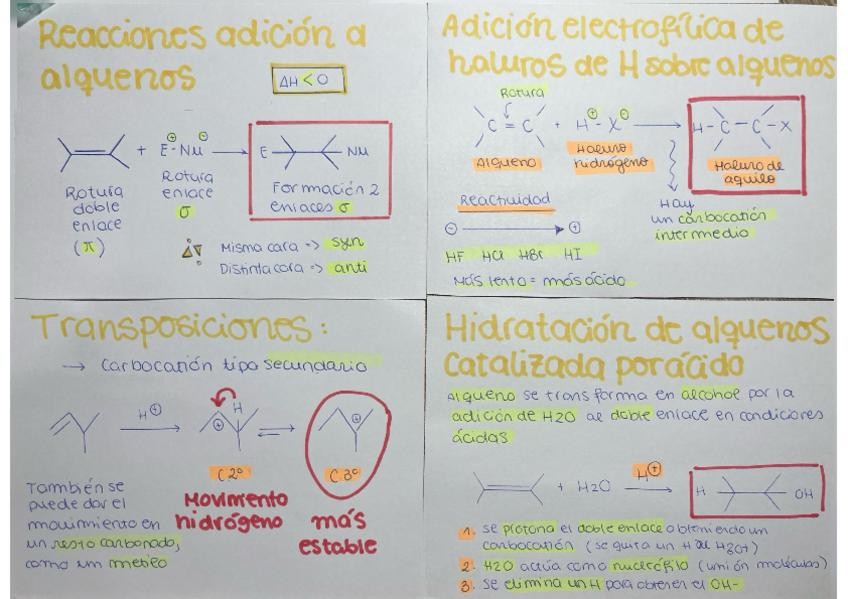 Reacciones adición a
alquenos
ΔH < 0
+ E - Nu
⊕ ⊖
E
Nu
Rotura
doble
enlace
(π)
Rotura
enlace
σ
Formación 2
enlaces σ
Misma cara => syn
Distinta cara => anti
Adición electrofílica de
haluros de H sobre alquenos
Rotura
C = C + H - X
⊕ ⊖
H - C - C - X
Alqueno
Haluro
hidrógeno
Haluro de
aquilo
Reactividad
⊖ ⊕
HF HCl HBr HI
Más lento = más ácido
Hay
un carbocatión
intermedio
Transposiciones:
→ Carbocatión tipo secundario
H⊕
H
⊕
⊕
C 2º
C 3º
También se
puede dar el
movimiento en
un resto carbonado,
como un metilo
Movimento
hidrógeno
más
estable
Hidratación de alquenos
catalizada por ácido
Alqueno se transforma en alcohol por la
adición de H2O al doble enlace en condiciones
ácidas
+ H2O
H⊕
H
OH
1. Se protona el doble enlace obteniendo un
carbocatión (se quita un H al H3O+)
2. H2O actúa como nucleófilo (unión moléculas)
3. Se elimina un H para obtener el OH-